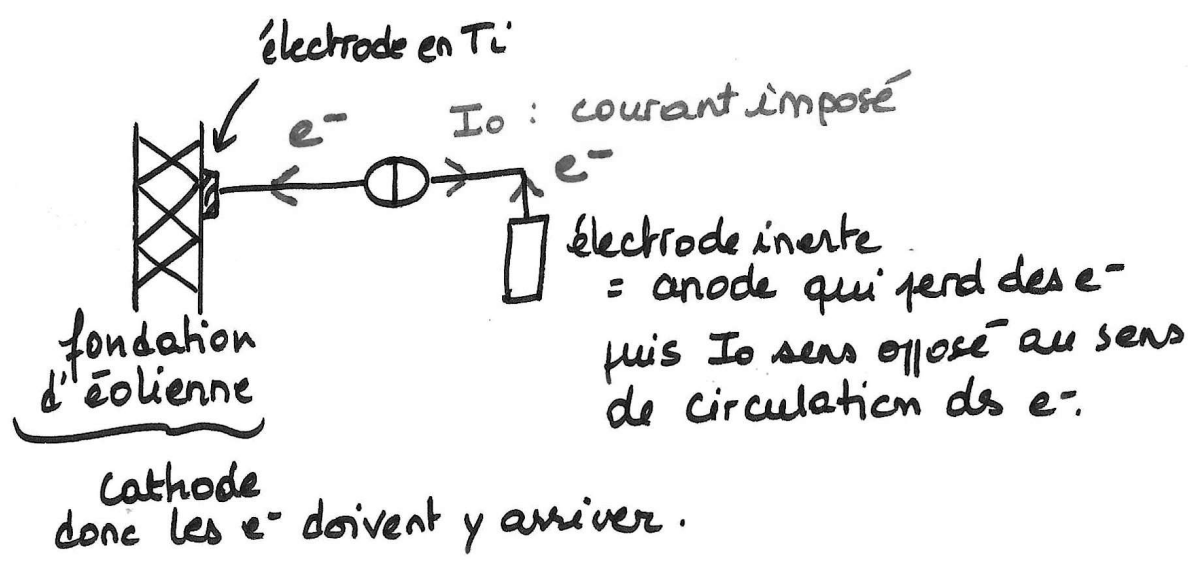 électrode en Ti
e⁻
I₀ : courant imposé
e⁻
électrode inerte
= anode qui perd des e⁻
puis I₀ sens opposé au sens
de circulation ds e⁻.
fondation
d'éolienne
cathode
donc les e⁻ doivent y arriver.